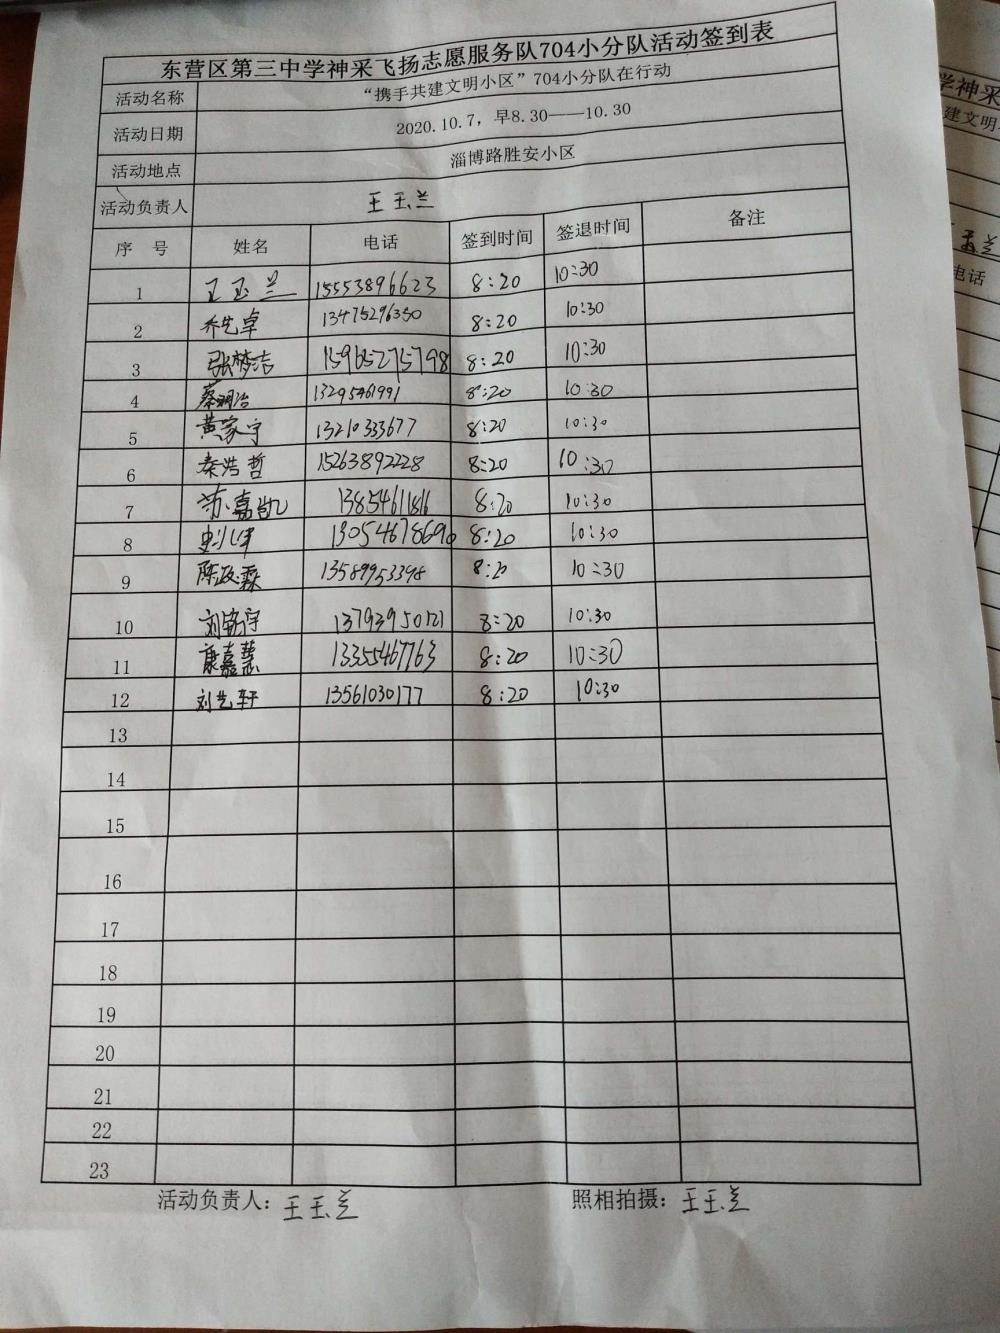 东营区第三中学神采飞扬志愿服务队704小分队活动签到表
活动名称 “携手共建文明小区”704小分队在行动
活动日期 2020.10.7，早8.30——10.30
活动地点 淄博路胜安小区
活动负责人 王玉兰
序 号 姓名 电话 签到时间 签退时间 备注
1 王玉兰 15553896623 8:20 10:30
2 乔先卓 13475296350 8:20 10:30
3 张梦洁 15965275798 8:20 10:30
4 蔡 13295461991 8:20 10:30
5 黄家宇 13210333677 8:20 10:30
6 秦浩哲 15263892228 8:20 10:30
7 苏嘉凯 13854611816 8:20 10:30
8 8:20 10:30
9 陈政霖 13589953398 8:20 10:30
10 刘铭宇 13793950121 8:20 10:30
11 康嘉慧 13355467763 8:20 10:30
12 刘艺轩 13561030177 8:20 10:30
13
14
15
16
17
18
19
20
21
22
23
活动负责人：王玉兰 照相拍摄：王玉兰
学神采
建文明
玉兰
电话